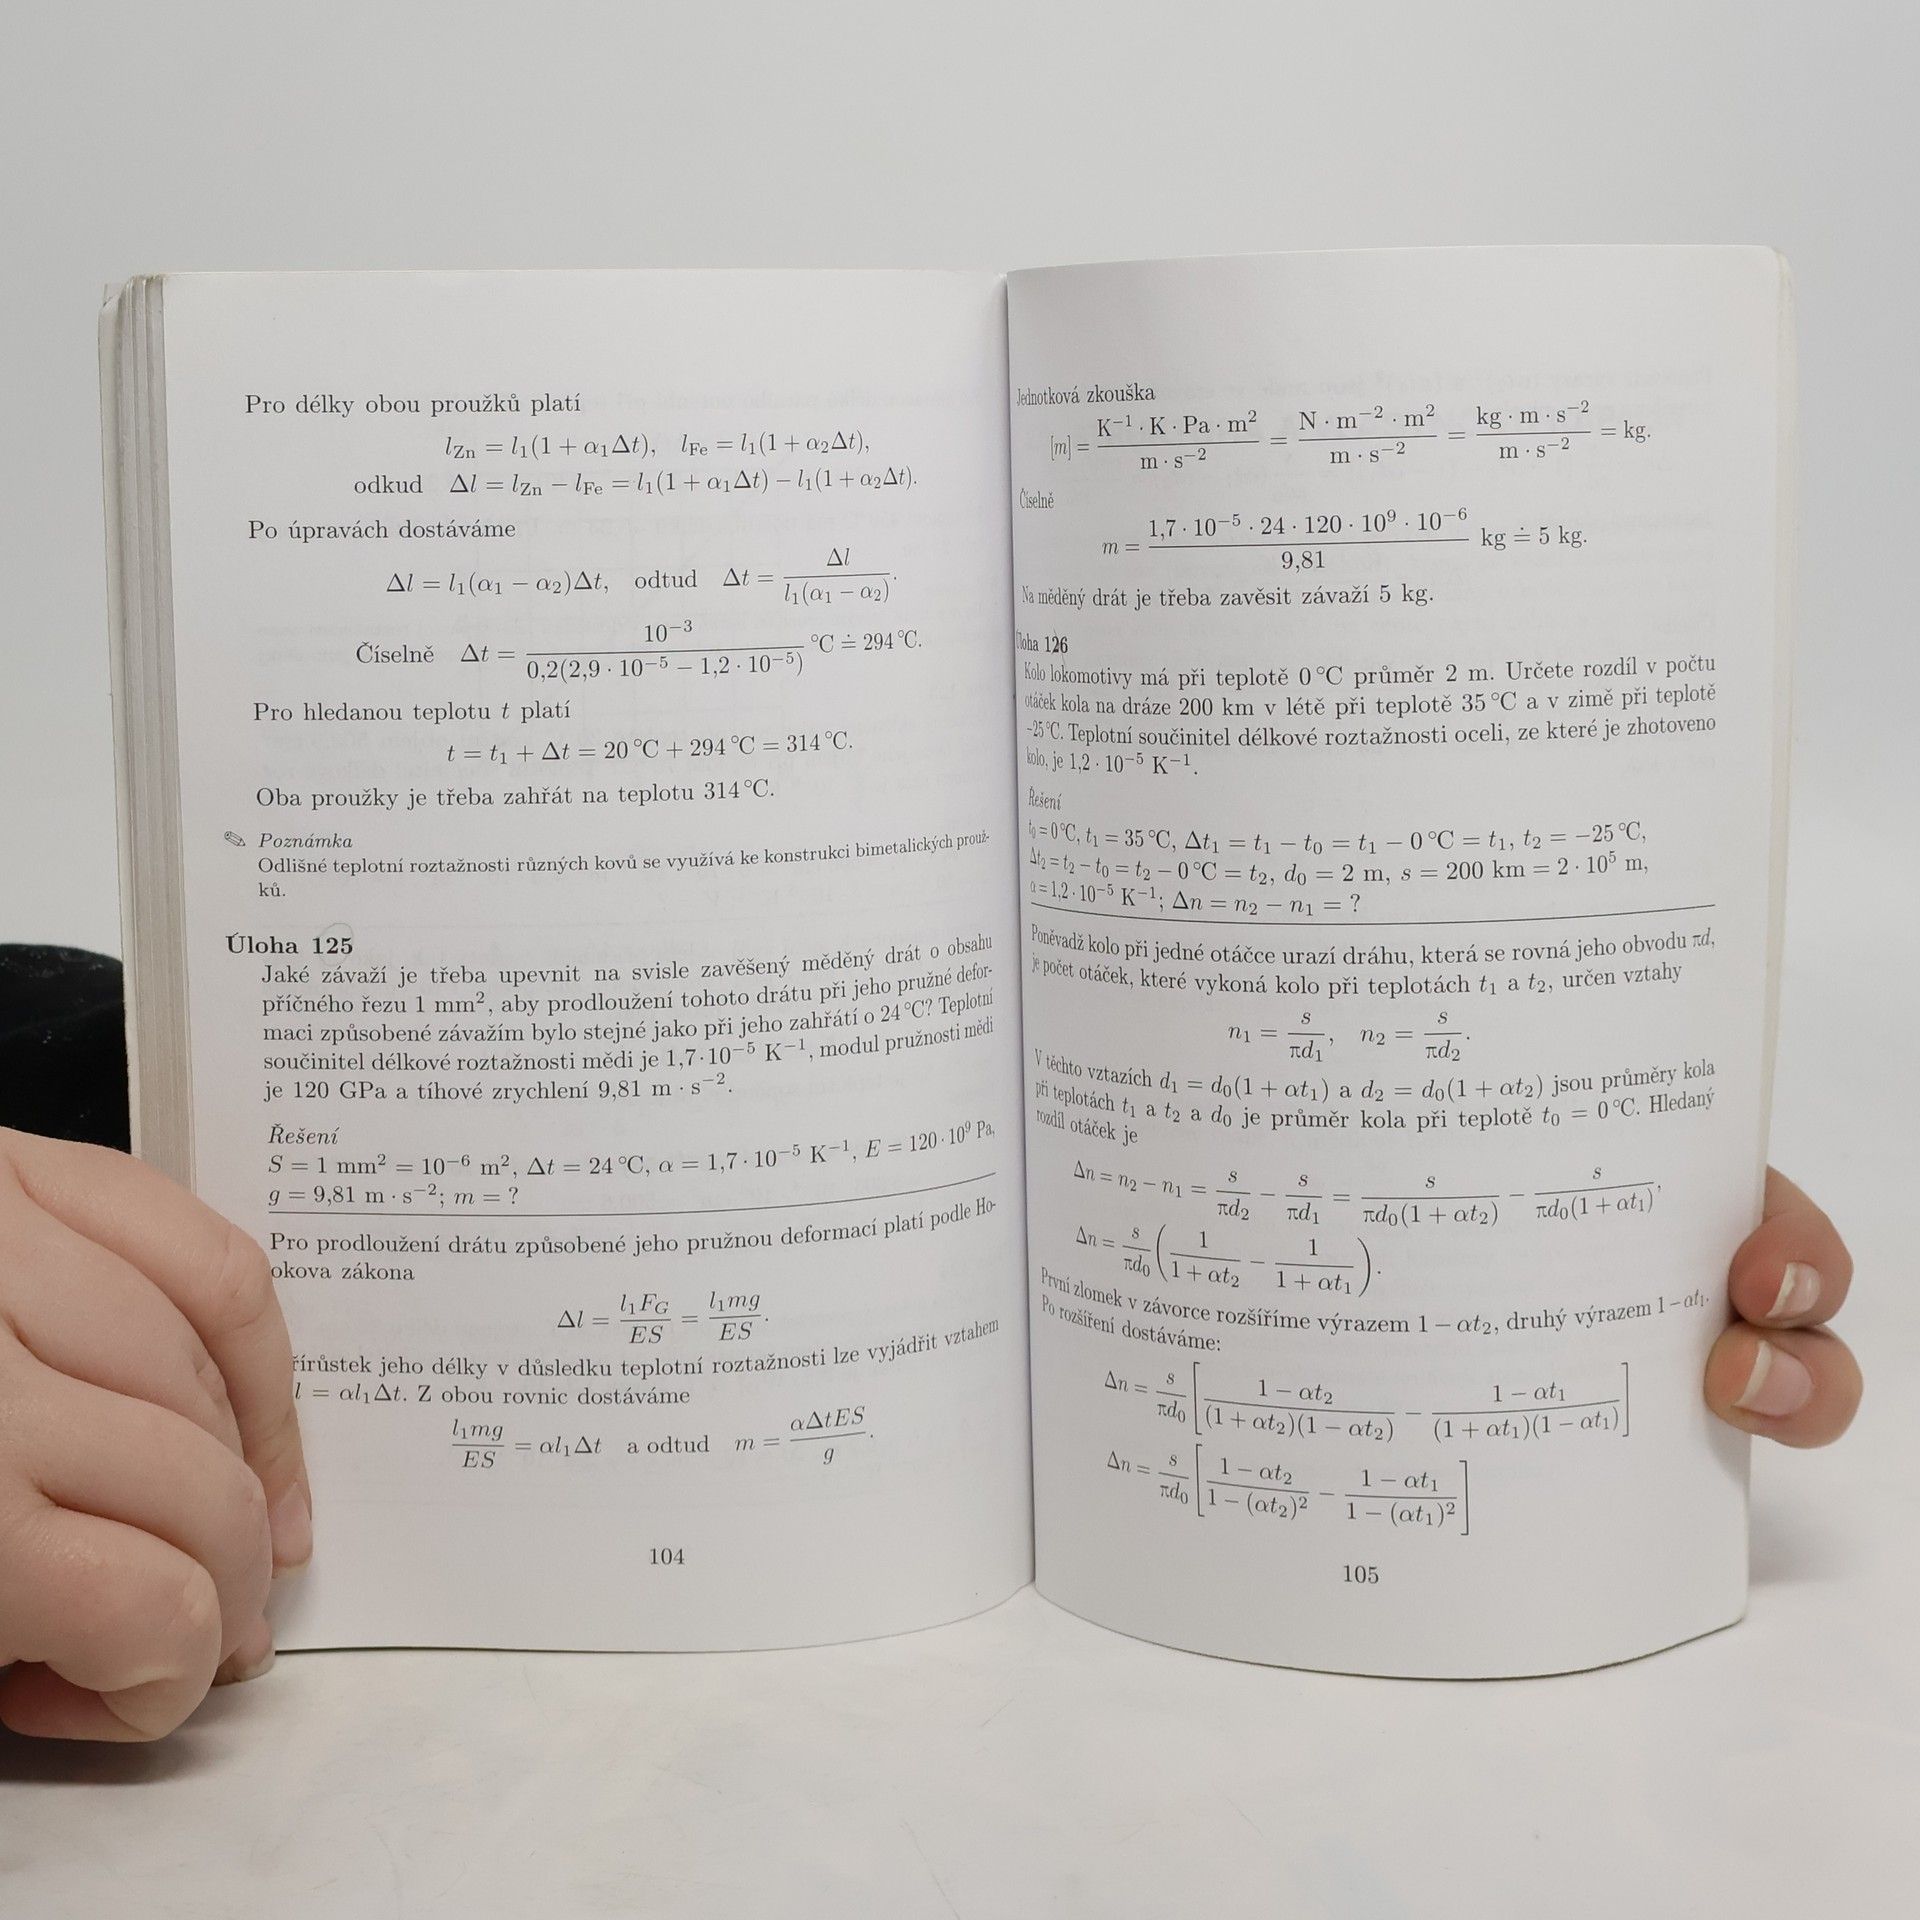 Pro délky obou proužků platí
l_Zn = l₁(1 + α₁Δt), l_Fe = l₁(1 + α₂Δt),
odkud Δl = l_Zn − l_Fe = l₁(1 + α₁Δt) − l₁(1 + α₂Δt).
Po úpravách dostáváme
Δl = l₁(α₁ − α₂)Δt, odtud Δt = Δl / (l₁(α₁ − α₂)).
Číselně Δt = 10⁻³ / (0,2(2,9 · 10⁻⁵ − 1,2 · 10⁻⁵)) °C ≐ 294 °C.
Pro hledanou teplotu t platí
t = t₁ + Δt = 20 °C + 294 °C = 314 °C.
Oba proužky je třeba zahřát na teplotu 314 °C.
✎ Poznámka
Odlišné teplotní roztažnosti různých kovů se využívá ke konstrukci bimetalických prouž-
ků.
Úloha 125
Jaké závaží je třeba upevnit na svisle zavěšený měděný drát o obsahu
příčného řezu 1 mm², aby prodloužení tohoto drátu při jeho pružné defor-
maci způsobené závažím bylo stejné jako při jeho zahřátí o 24 °C? Teplotní
součinitel délkové roztažnosti mědi je 1,7·10⁻⁵ K⁻¹, modul pružnosti mědi
je 120 GPa a tíhové zrychlení 9,81 m · s⁻².
Řešení
S = 1 mm² = 10⁻⁶ m², Δt = 24 °C, α = 1,7 · 10⁻⁵ K⁻¹, E = 120 · 10⁹ Pa,
g = 9,81 m · s⁻²; m = ?
Pro prodloužení drátu způsobené jeho pružnou deformací platí podle Ho-
okova zákona
Δl = l₁F_G / ES = l₁mg / ES.
řírůstek jeho délky v důsledku teplotní roztažnosti lze vyjádřit vztahem
l = αl₁Δt. Z obou rovnic dostáváme
l₁mg / ES = αl₁Δt a odtud m = αΔtES / g.
104
Jednotková zkouška
[m] = K⁻¹ · K · Pa · m² / m · s⁻² = N · m⁻² · m² / m · s⁻² = kg · m · s⁻² / m · s⁻² = kg.
Číselně
m = 1,7 · 10⁻⁵ · 24 · 120 · 10⁹ · 10⁻⁶ / 9,81 kg ≐ 5 kg.
Na měděný drát je třeba zavěsit závaží 5 kg.
Úloha 126
Kolo lokomotivy má při teplotě 0 °C průměr 2 m. Určete rozdíl v počtu
otáček kola na dráze 200 km v létě při teplotě 35 °C a v zimě při teplotě
−25 °C. Teplotní součinitel délkové roztažnosti oceli, ze které je zhotoveno
kolo, je 1,2 · 10⁻⁵ K⁻¹.
Řešení
t₀ = 0 °C, t₁ = 35 °C, Δt₁ = t₁ − t₀ = t₁ − 0 °C = t₁, t₂ = −25 °C,
Δt₂ = t₂ − t₀ = t₂ − 0 °C = t₂, d₀ = 2 m, s = 200 km = 2 · 10⁵ m,
α = 1,2 · 10⁻⁵ K⁻¹; Δn = n₂ − n₁ = ?
Poněvadž kolo při jedné otáčce urazí dráhu, která se rovná jeho obvodu πd,
je počet otáček, které vykoná kolo při teplotách t₁ a t₂, určen vztahy
n₁ = s / πd₁, n₂ = s / πd₂.
V těchto vztazích d₁ = d₀(1 + αt₁) a d₂ = d₀(1 + αt₂) jsou průměry kola
při teplotách t₁ a t₂ a d₀ je průměr kola při teplotě t₀ = 0 °C. Hledaný
rozdíl otáček je
Δn = n₂ − n₁ = s / πd₂ − s / πd₁ = s / (πd₀(1 + αt₂)) − s / (πd₀(1 + αt₁)),
Δn = s / πd₀ (1 / (1 + αt₂) − 1 / (1 + αt₁)).
První zlomek v závorce rozšíříme výrazem 1 − αt₂, druhý výrazem 1 − αt₁.
Po rozšíření dostáváme:
Δn = s / πd₀ [(1 − αt₂) / ((1 + αt₂)(1 − αt₂)) − (1 − αt₁) / ((1 + αt₁)(1 − αt₁))]
Δn = s / πd₀ [(1 − αt₂) / (1 − (αt₂)²) − (1 − αt₁) / (1 − (αt₁)²)]
105